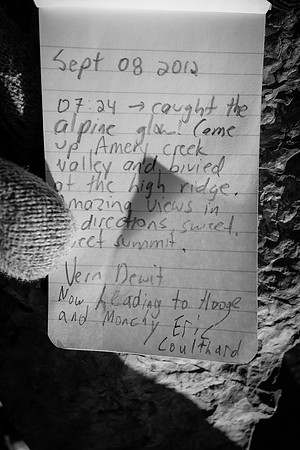 Sept 08 2012
07:24 → caught the
alpine glow! Came
up Amery creek
valley and bivied
at the high ridge.
amazing views in
directions, sweet,
summit.
Vern Dewit
Now heading to Hooge
and Monchy Eric
Coulthard